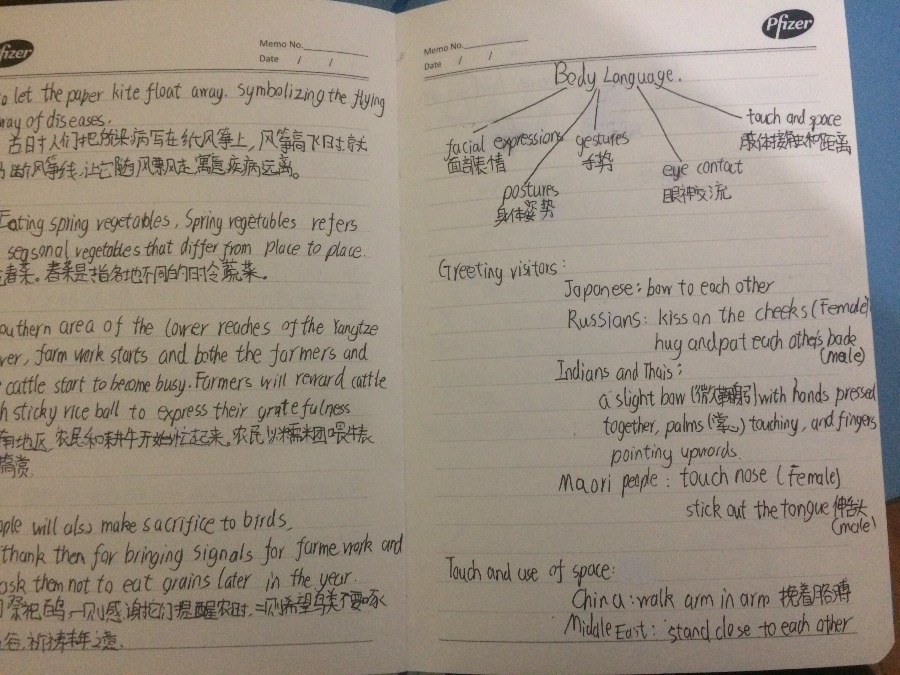 Pfizer
Memo No.
Date / /
o let the paper kite float away. Symbolizing the flying
way of diseases.
古时人们把所染病写在纸风筝上，风筝高飞时就
断风筝线，让它随风飘走，寓意疾病远离。
Eating spring vegetables, Spring vegetables refers
seasonal vegetables that differ from place to place.
春菜。春菜是指各地不同的时令蔬菜。
outhern area of the lower reaches of the Yangtze
ver, farm work starts and bothe the farmers and
cattle start to become busy. Farmers will reward cattle
h sticky rice ball to express their gratefulness
南地区，农民和耕牛开始忙起来，农民以糯米团喂牛表
犒赏.
ople will also make sacrifice to birds,
thank then for bringing signals for farme work and
ask them not to eat grains later in the year.
祭祀百鸟，一则感谢它们提醒农时，二则希望鸟类不要啄
谷，祈祷丰年之意.
Pfizer
Memo No.
Date / /
Body Language.
facial expressions
面部表情
postures
身体姿势
gestures
手势
eye contact
眼神交流
touch and space
肢体接触和距离
Greeting visitors:
Japonese: bow to each other
Russians: kiss on the cheeks (Female)
hug and pat each other's back
(male)
Indians and Thais:
a slight bow (微微鞠躬) with hands pressed
together, palms (掌心) touching, and fingers
pointing upwords.
Maori people: touch nose (Female)
stick out the tongue 伸舌头
(male)
Touch and use of space:
China: walk arm in arm 挽着胳膊
Middle East: stand close to each other